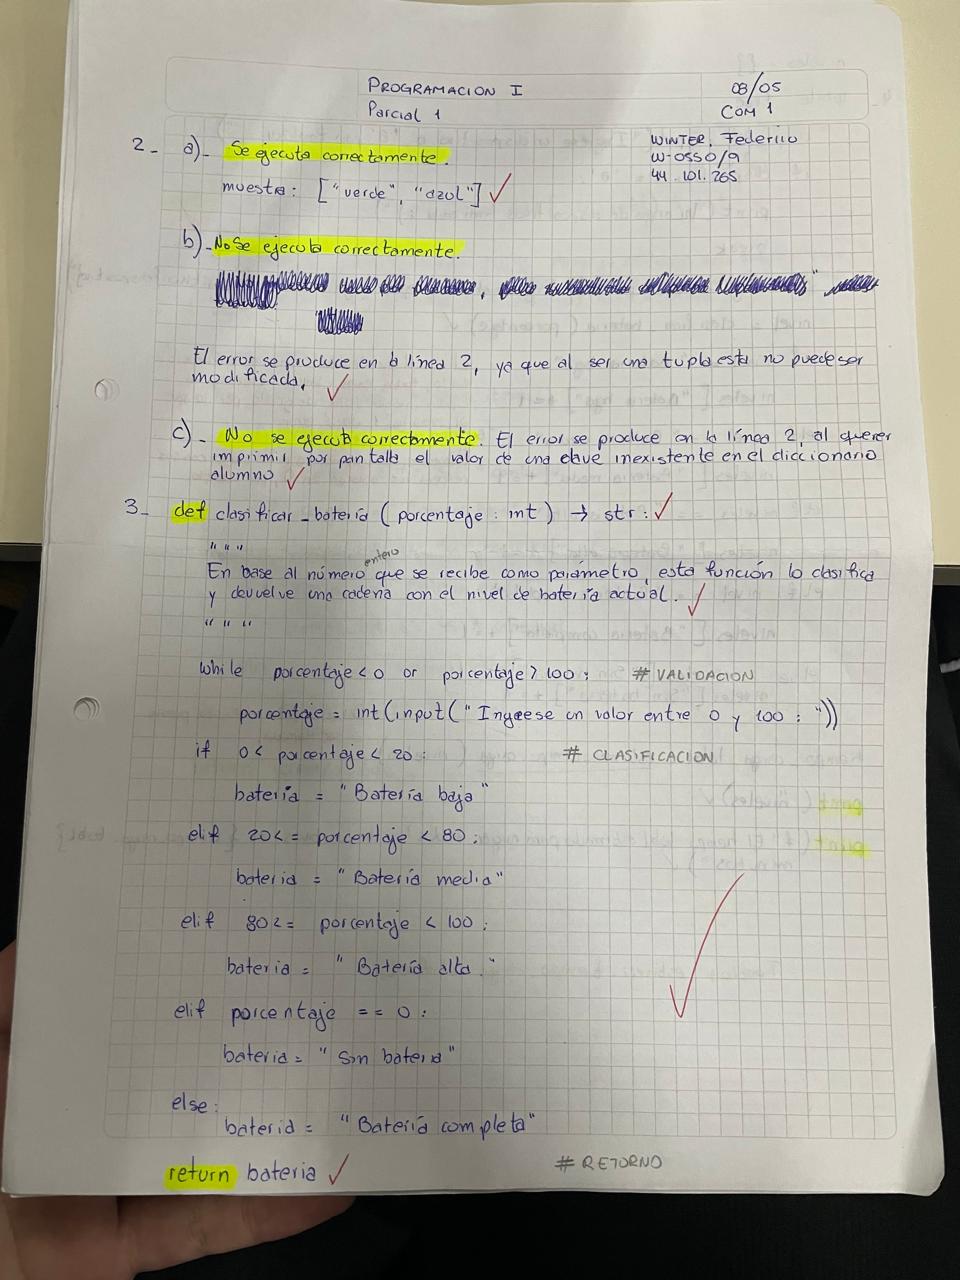 PROGRAMACION I
08/05
Parcial 1
COM 1
WINTER, Federico
W-0550/9
44.101.265
2- a)- Se ejecuta correctamente.
muestra: ["verde", "azul"]
b)- No Se ejecuta correctamente.
El error se produce en la línea 2, ya que al ser una tupla esta no puede ser
modificada.
c)- No se ejecuta correctamente. El error se produce en la línea 2, al querer
imprimir por pantalla el valor de una clave inexistente en el diccionario
alumno
3- def clasificar_bateria (porcentaje: int) → str:
" " "
entero
En base al número que se recibe como parámetro, esta función lo clasifica
y devuelve una cadena con el nivel de batería actual.
" " "
while porcentaje < 0 or porcentaje > 100: # VALIDACION
porcentaje = int(input("Ingrese un valor entre 0 y 100: "))
if 0 < porcentaje < 20: # CLASIFICACION
bateria = "Batería baja"
elif 20 <= porcentaje < 80:
bateria = "Batería media"
elif 80 <= porcentaje < 100:
bateria = "Batería alta."
elif porcentaje == 0:
bateria = "Sin bateria"
else:
bateria = "Batería completa"
return bateria # RETORNO